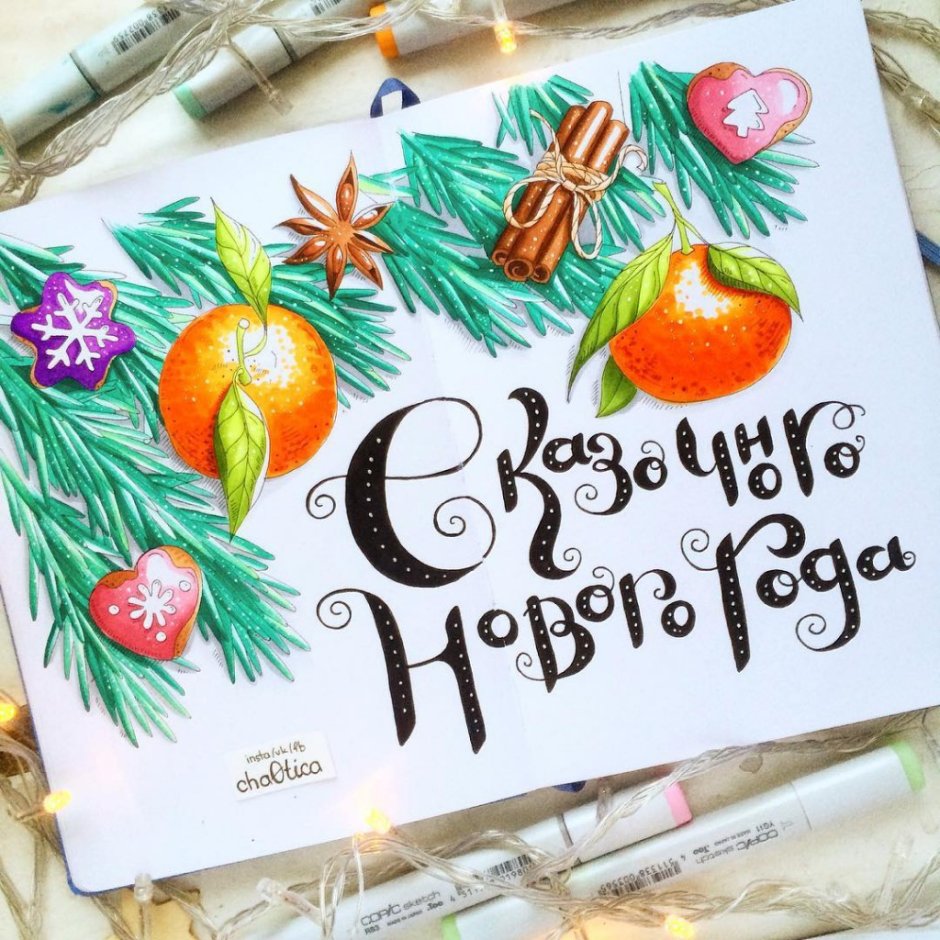 Сказочного
Нового Года
insta/vk/fb
cha0tica
COPIC sketch
R83
COPIC sketch
YG11